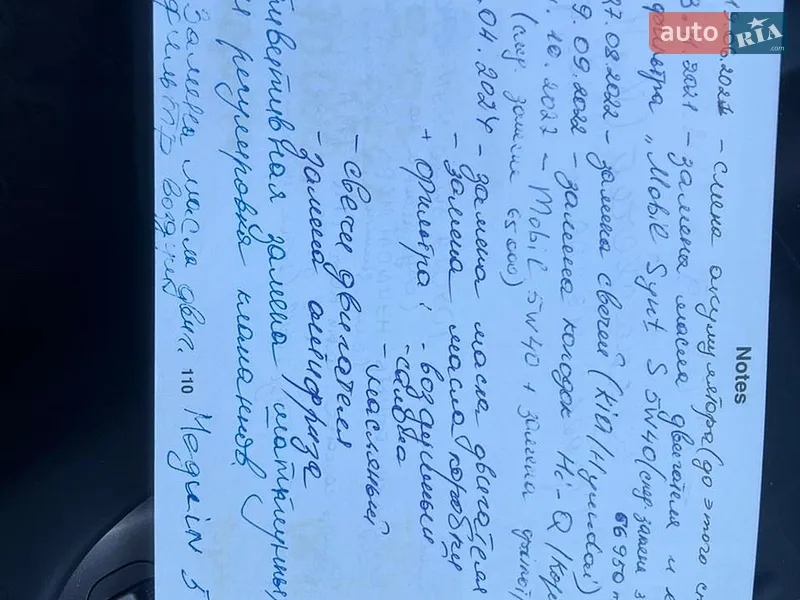 auto RIA .com
Notes
- смена аккумулятора (до этого
2021 - замена масла двигателя и
фильтра "Mobil Synt S 5W40 (след. замена
27.08.2022 - замена свечей (KIA/Hyundai)
9.09.2022 - замена колодок Hi-Q (Коре
10.2022 - Mobil 5W40 + замена
(след. замена 65000)
.04.2024 - замена масла двигателя
- замена масла коробки
+ фильтра: - воздушный
- салона
- масляный
- свечи двигателя
- замена антифриза
замена
и регулировка клапанов
Замена масла двиг. Meguin 5
фильтр воздушн
110